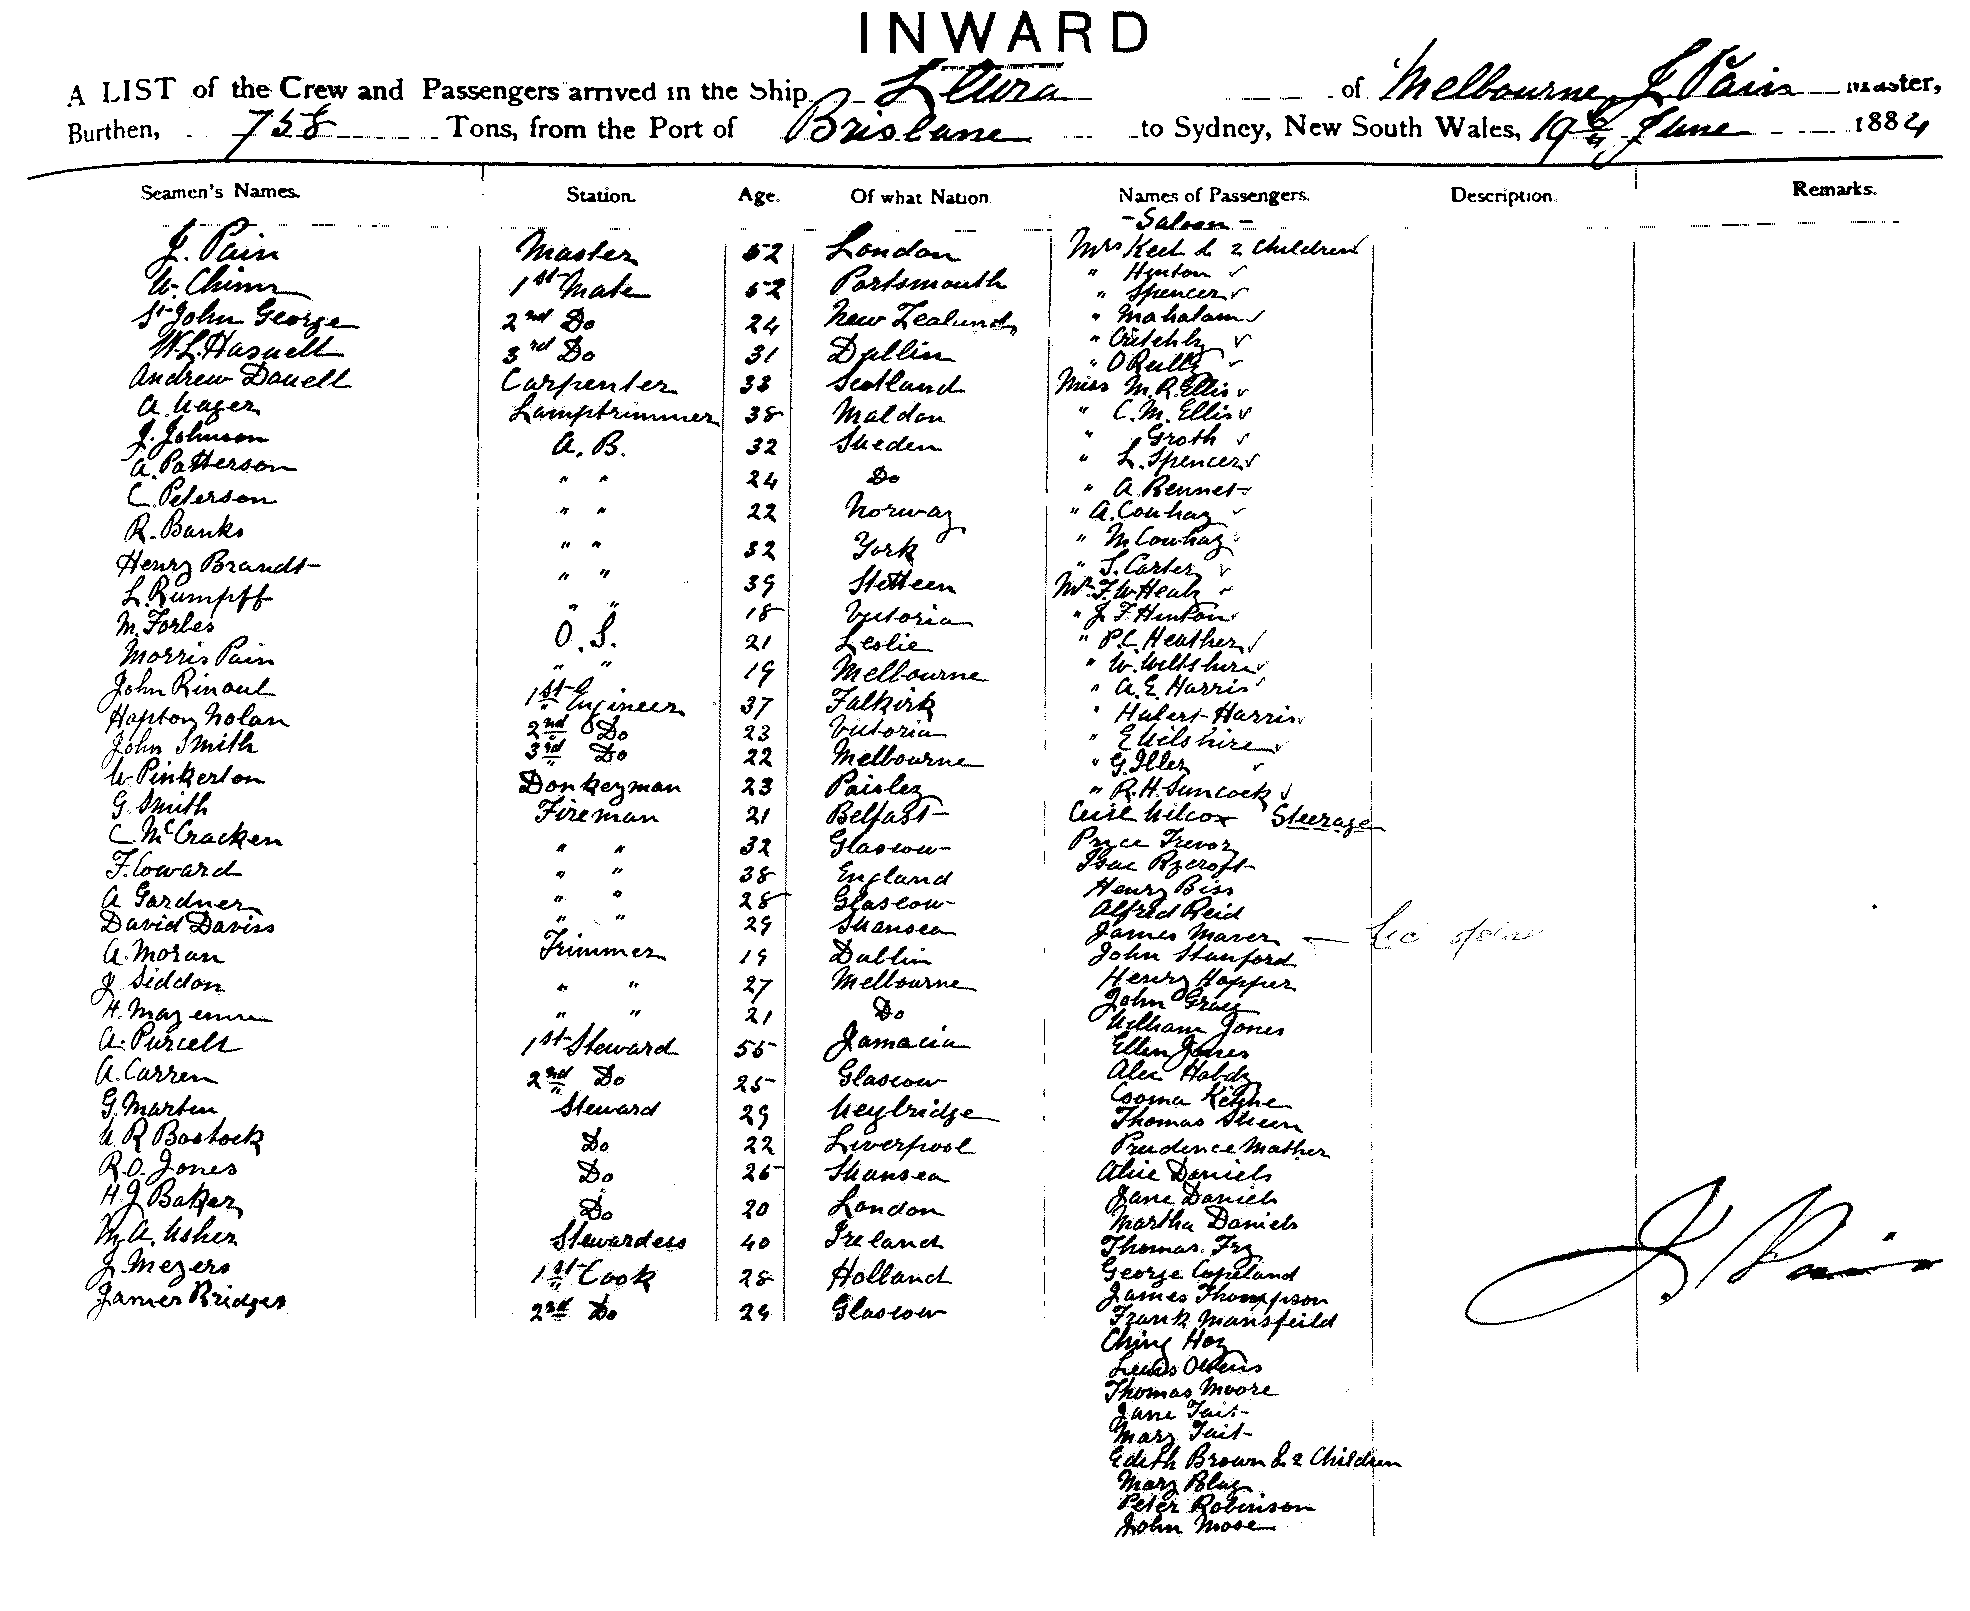 INWARD
A LIST of the Crew and Passengers arrived in the Ship Leura of Melbourne, J Pain Master,
Burthen, 758 Tons, from the Port of Brisbane to Sydney, New South Wales, 19th June 1884
Seamen's Names. Station. Age. Of what Nation. Names of Passengers. Description. Remarks.
- Saloon -
J. Pain Master 52 London Mrs Keet & 2 Children
W. 1st Mate 52 Portsmouth " Hynton
St John George 2nd Do 24 New Zealand " Spencer
W.L. Hasnell 3rd Do 31 Dublin " Mahalam
Andrew Danell Carpenter 33 Scotland " Critchly
A. Wager Lamptrimmer 38 Maldon " O Reilly
J. Johnson A. B. 32 Sweden Miss M.R. Ellis
A. Patterson " " 24 Do " C. M. Ellis
C. Peterson " " 22 Norway " Groth
R. Banks " " 32 York " L. Spencer
Henry Brandt " " 39 Stetteen " A. Rennet
L. Rumpff " " 18 Victoria " A. Conhay
M. Forbes O. S. 21 Leslie " M Conhay
Morris Pain " " 19 Melbourne " S. Carter
John Rinoul 1st Engineer 37 Falkirk Mr F. W Healy
Hopton Nolan 2nd Do 23 Victoria " J F. Hinton
John Smith 3rd Do 22 Melbourne " P.C. Heather
W Pinkerton Donkeyman 23 Paisley " W. Wiltshire
G. Smith Fireman 21 Belfast " A. E. Harris
C. McCracken " " 32 Glascow " Hubert Harris
F. Coward " " 38 England " E Wilshire
A Gardner " " 28 Glascow " G. Iller
David Daviss " " 29 Swansea " R. H. Suncock
A. Moran Trimmer 19 Dublin Wilcox Steerage
J Siddon " " 27 Melbourne Pryce Trevor
H. " " 21 Do Isac Rycroft
A. Purcell 1st Steward 55 Jamacia Henry Biss
A. Carren 2nd Do 25 Glascow Alfred Reid
G. Martin Steward 29 Weybridge James Maver
W R Bostock Do 22 Liverpool John Stanford
R. O. Jones Do 26 Swansea Henry Hopper
H. J Baker Do 20 London John Gray
M. A. Usher Stewardess 40 Ireland William Jones
J. Meyers 1st Cook 28 Holland Ellen Jones
James Bridges 2nd Do 29 Glascow Alec Habdy
Cooma
Thomas Steen
Prudence Mather
Alice Daniels
Jane Daniels
Martha Daniels
Thomas Fry
George Copeland
James Thompson
Frank Mansfeild
Ching Hoy
Lewis Owens
Thomas Moore
Jane Tait
Mary Tait
Edith Brown & 2 Children
Mary Blay
Peter Robinson
John Mose
J Pain